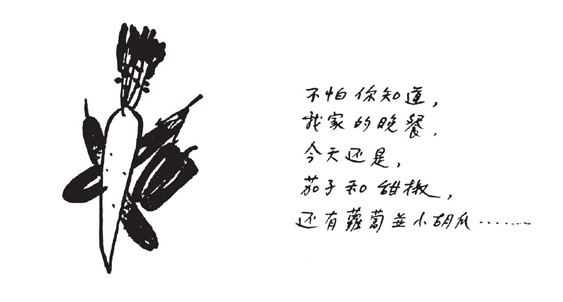 不怕你知道，
我家的晚餐，
今天还是，
茄子和甜椒，
还有蘿蔔並小胡瓜……